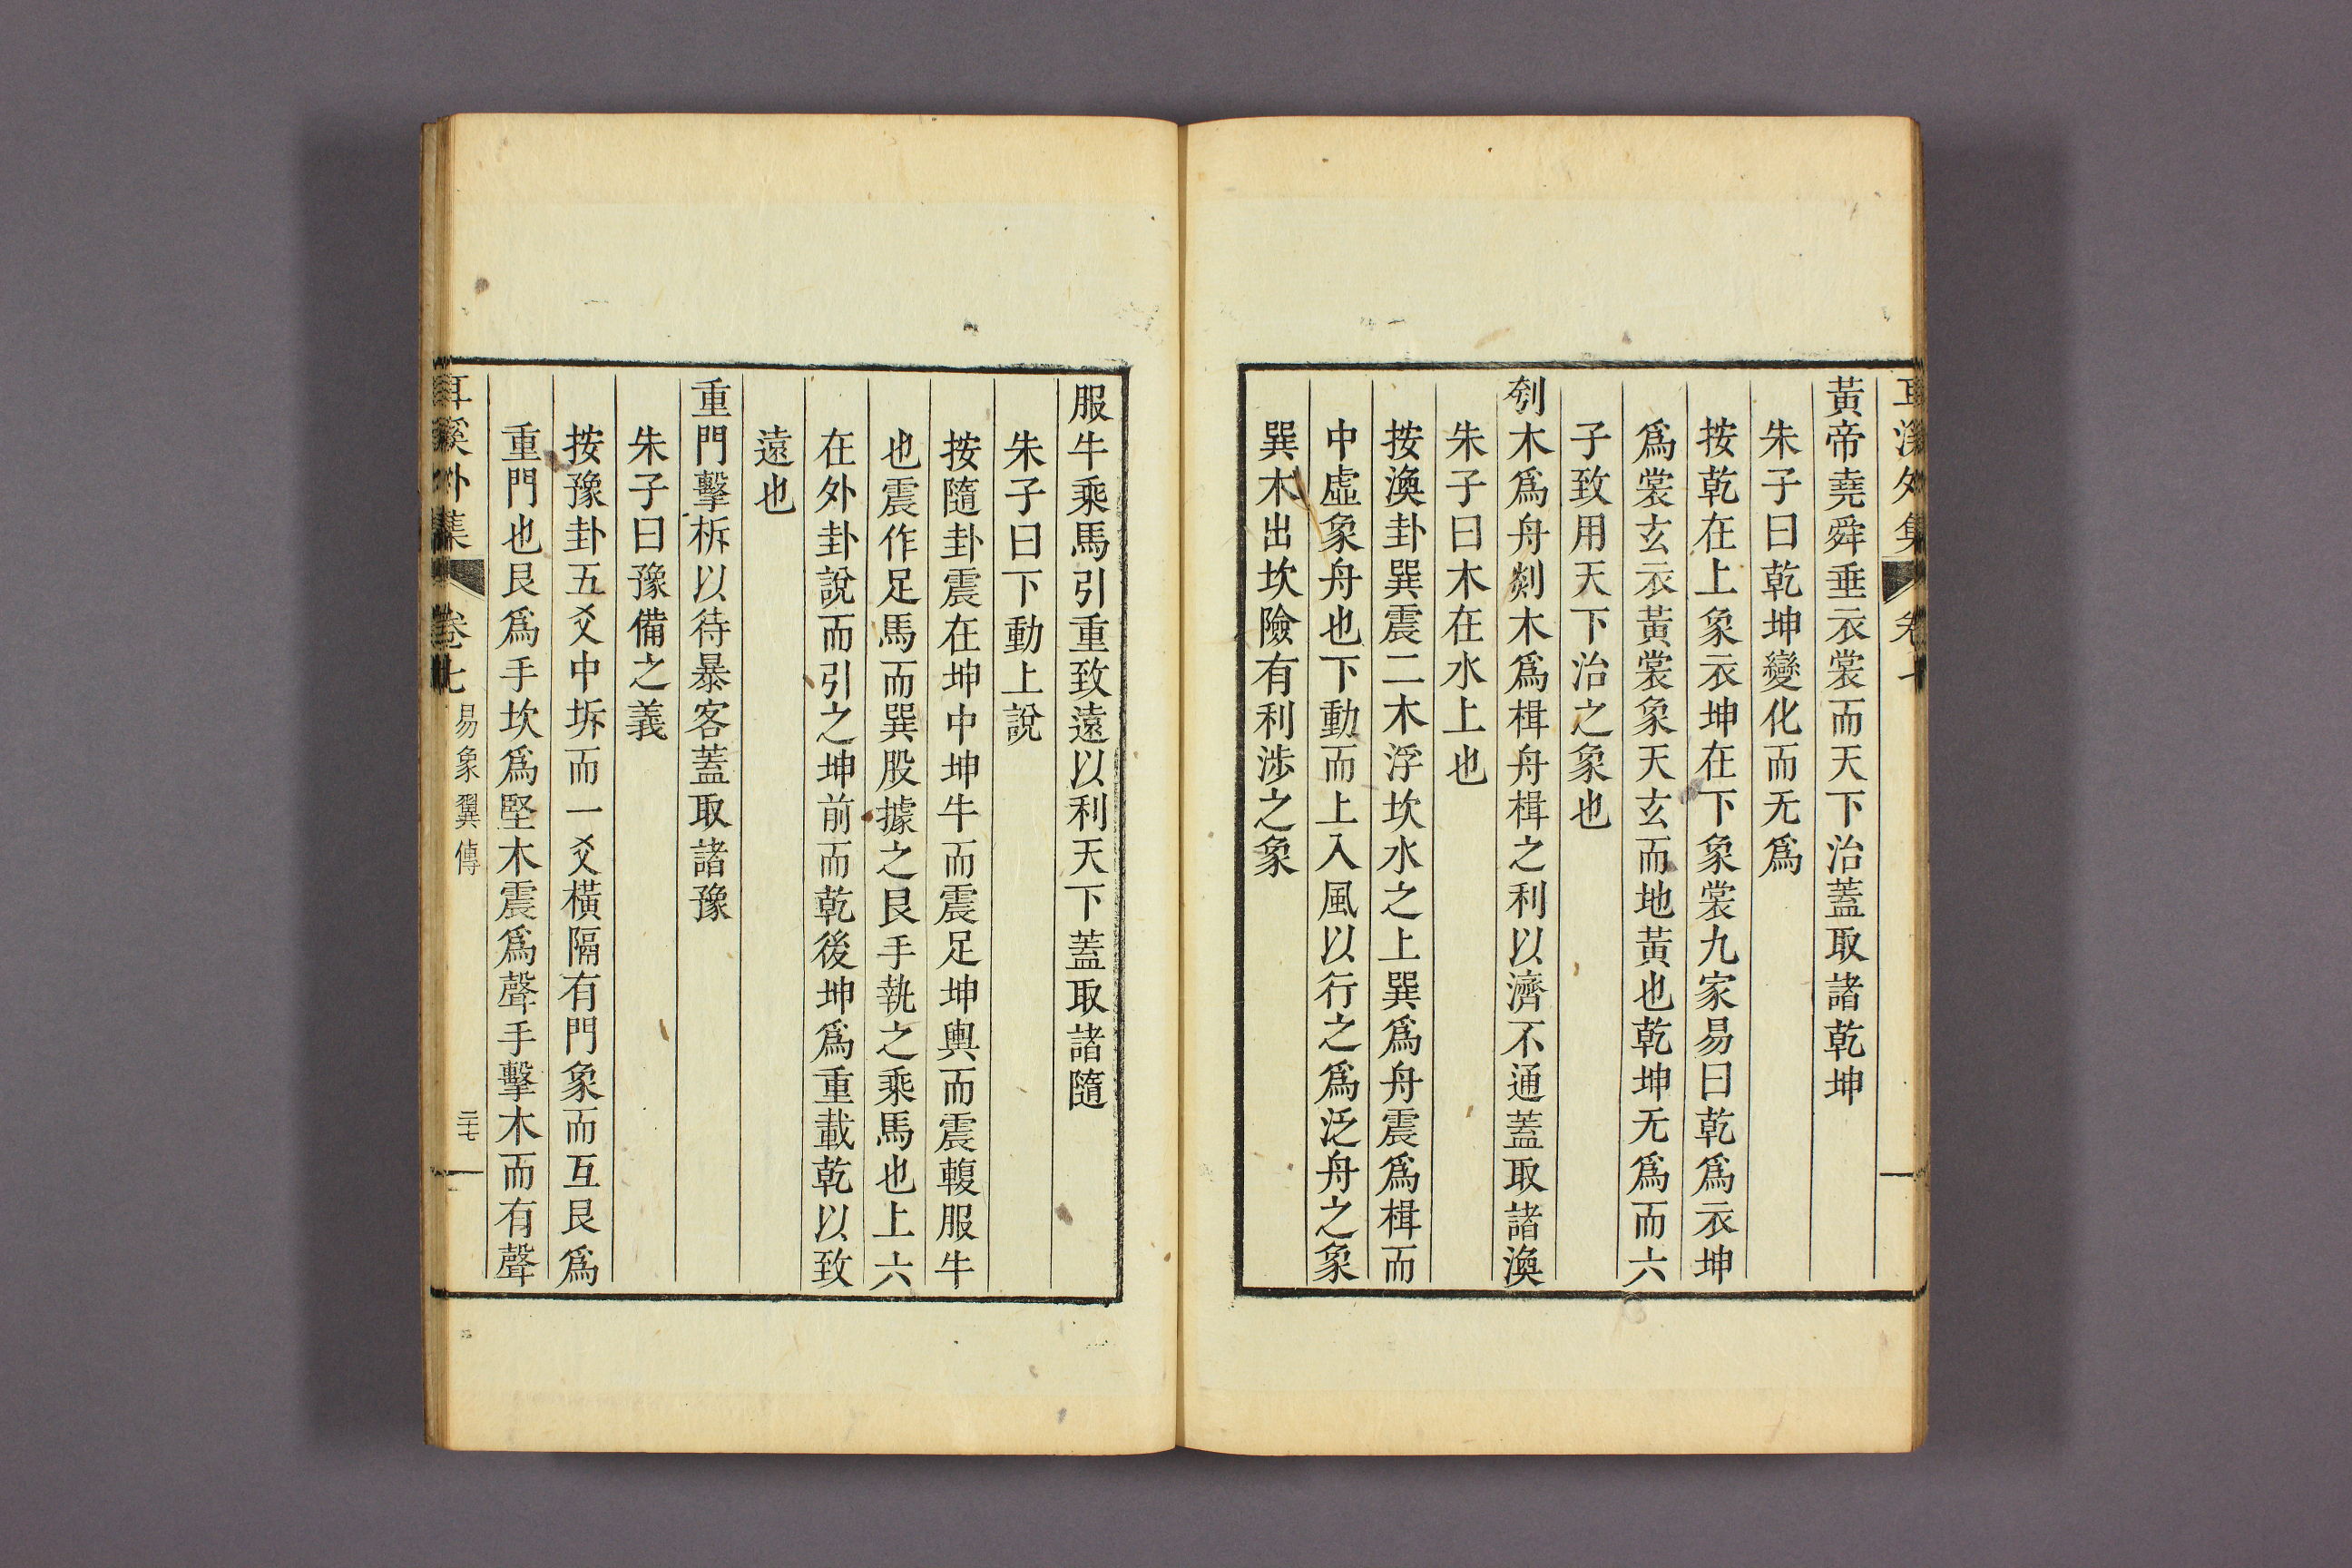 耳溪外集 卷七
黃帝堯舜垂衣裳而天下治蓋取諸乾坤
朱子曰乾坤變化而无爲
按乾在上象衣坤在下象裳九家易曰乾爲衣坤
爲裳玄衣黃裳象天玄而地黃也乾坤无爲而六
子致用天下治之象也
刳木爲舟剡木爲楫舟楫之利以濟不通蓋取諸渙
朱子曰木在水上也
按渙卦巽震二木浮坎水之上巽爲舟震爲楫而
中虛象舟也下動而上入風以行之爲泛舟之象
巽木出坎險有利涉之象
服牛乘馬引重致遠以利天下蓋取諸隨
朱子曰下動上說
按隨卦震在坤中坤牛而震足坤輿而震輹服牛
也震作足馬而巽股據之艮手執之乘馬也上六
在外卦說而引之坤前而乾後坤爲重載乾以致
遠也
重門擊柝以待暴客蓋取諸豫
朱子曰豫備之義
按豫卦五爻中坼而一爻橫隔有門象而互艮爲
重門也艮爲手坎爲堅木震爲聲手擊木而有聲
耳溪外集 卷七 易象翼傳 二十七